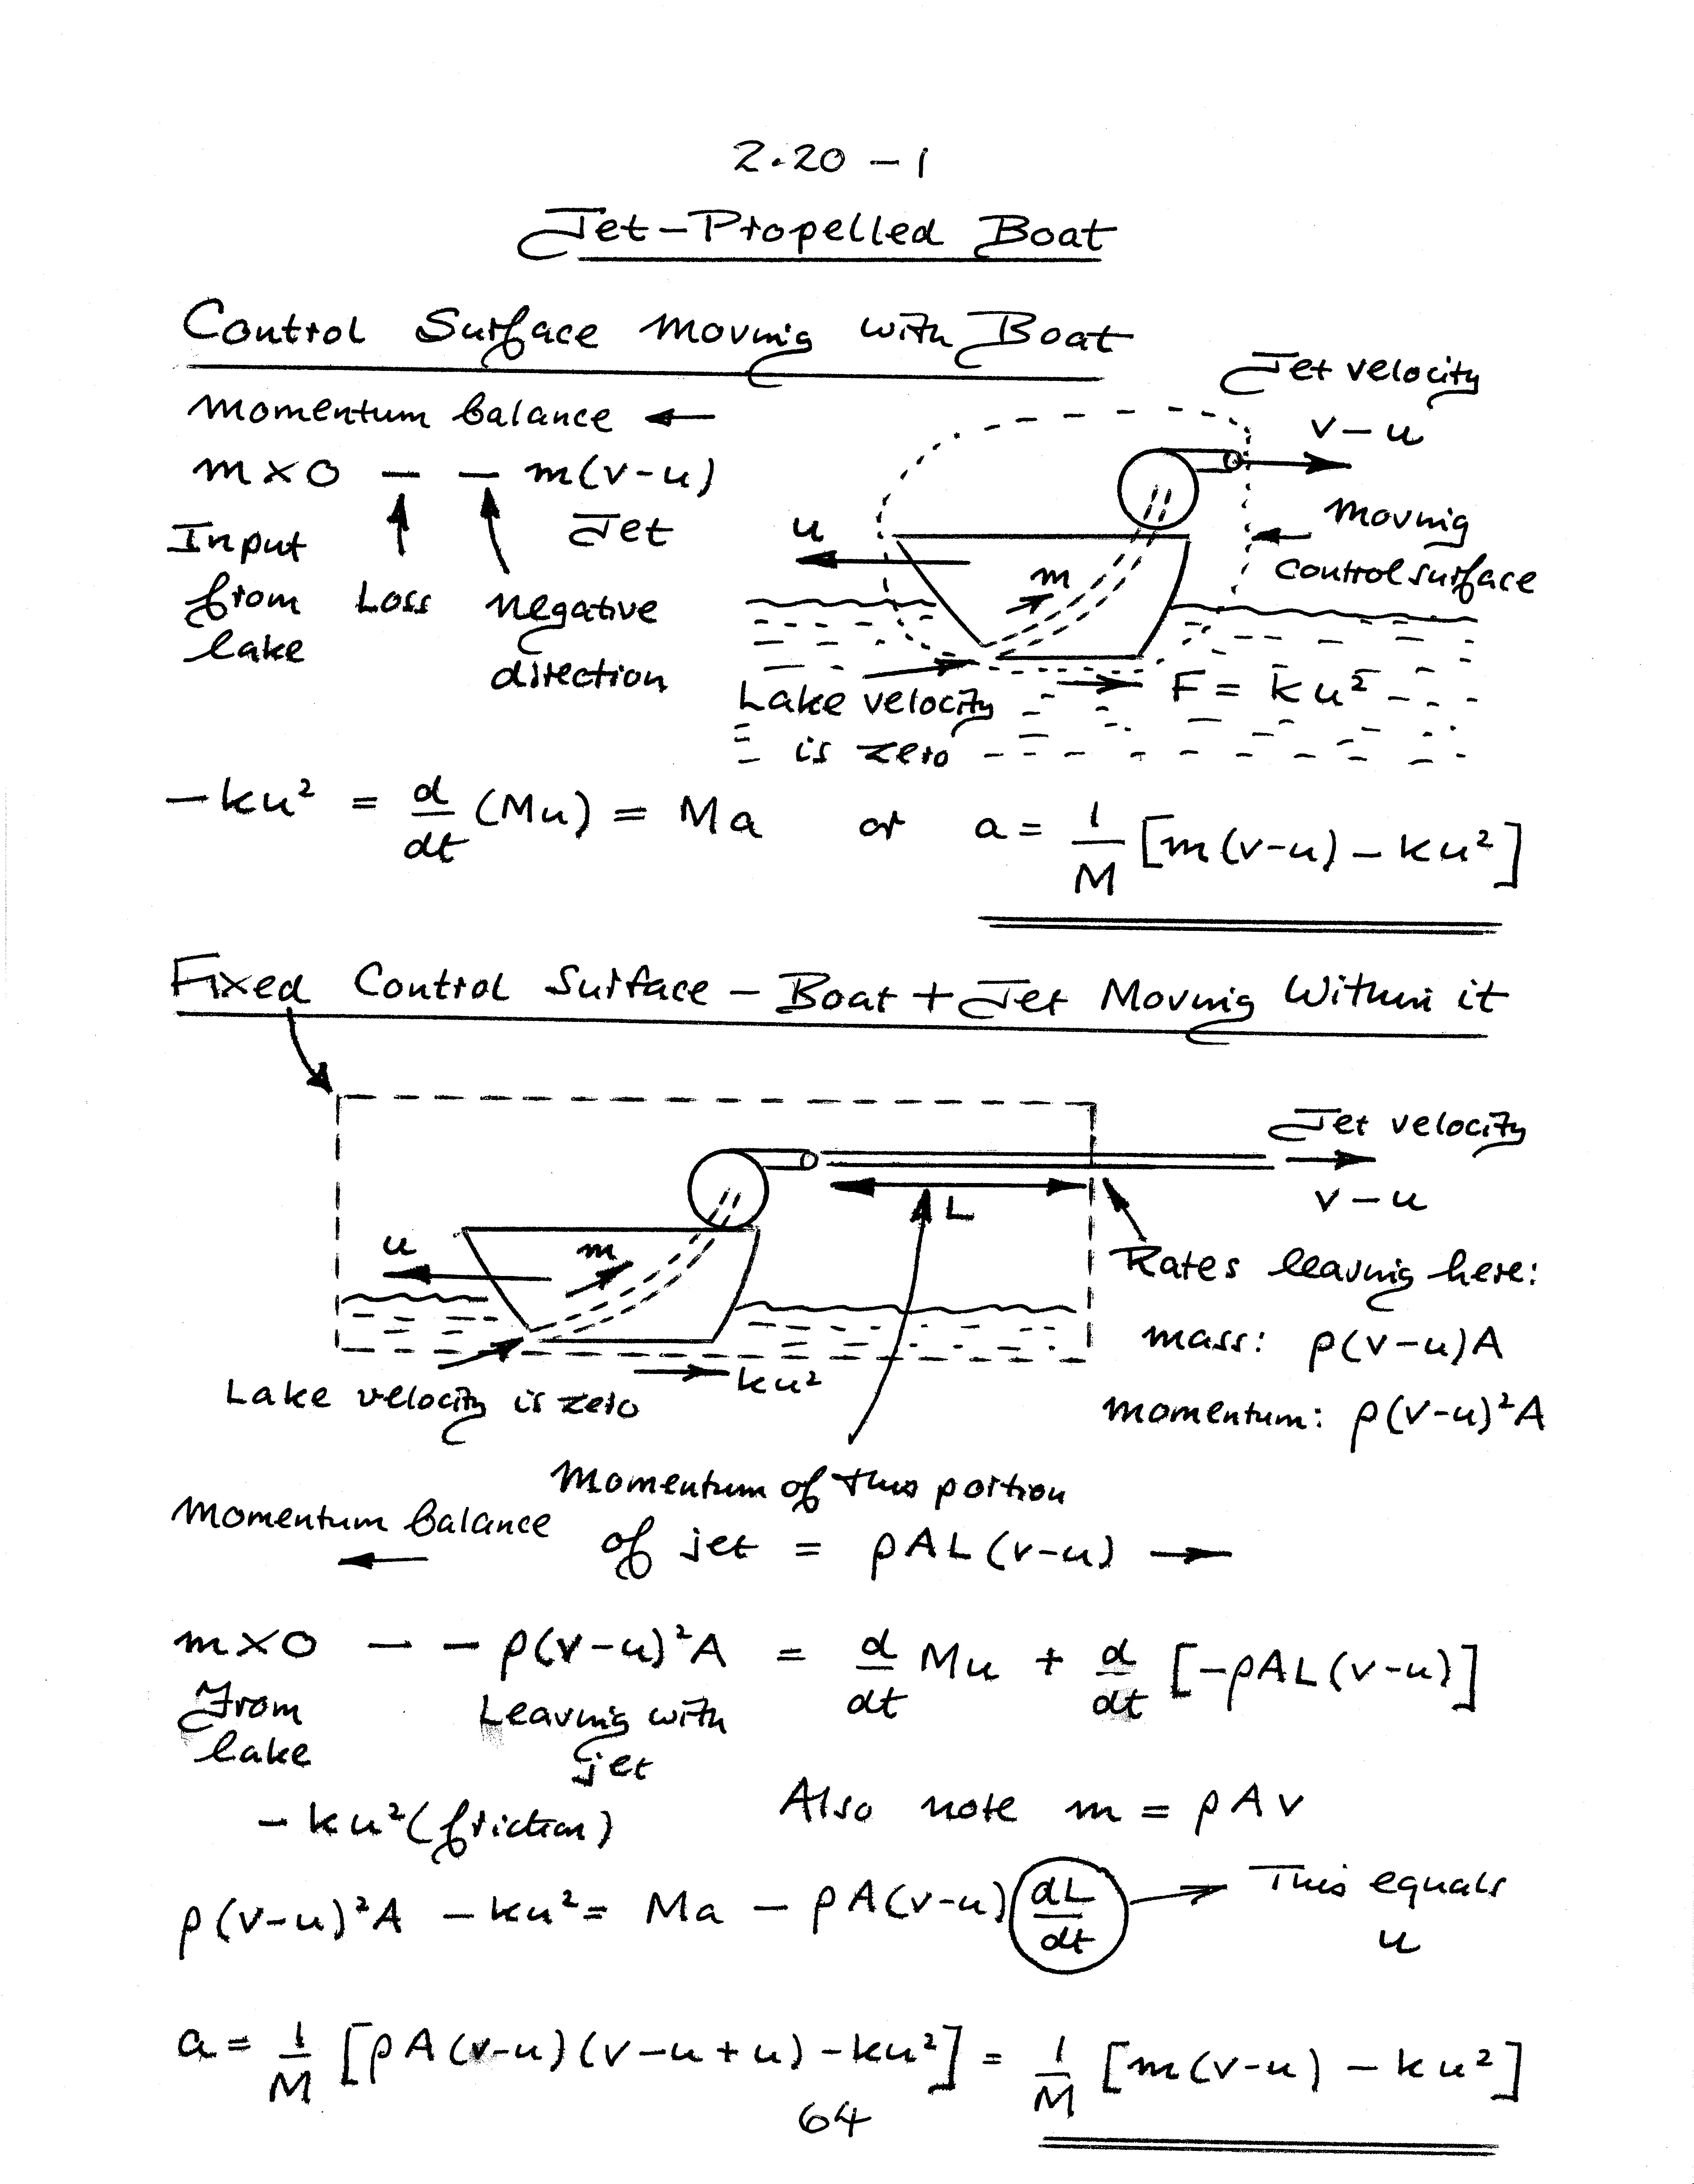 2.20 - 1
Jet-Propelled Boat
Control Surface Moving with Boat
Momentum balance ←
m × 0 — — m(v-u)
Input from lake
Loss
negative direction
Jet
Jet velocity
v - u
Moving control surface
u
m
Lake velocity is zero
F = ku²
-ku² = d/dt (Mu) = Ma or a = 1/M [m(v-u) - ku²]
Fixed Control Surface - Boat + Jet Moving Within it
Jet velocity
v - u
L
u
m
Rates leaving here:
mass: ρ(v-u)A
momentum: ρ(v-u)²A
ku²
Lake velocity is zero
Momentum of this portion
of jet = ρAL(v-u) →
Momentum balance
←
m × 0 — — ρ(v-u)²A = d/dt Mu + d/dt [-ρAL(v-u)]
From lake
Leaving with jet
- ku² (friction)
Also note m = ρAv
ρ(v-u)²A - ku² = Ma - ρA(v-u) dL/dt → This equals
u
a = 1/M [ρA(v-u)(v-u+u) - ku²] = 1/M [m(v-u) - ku²]
64